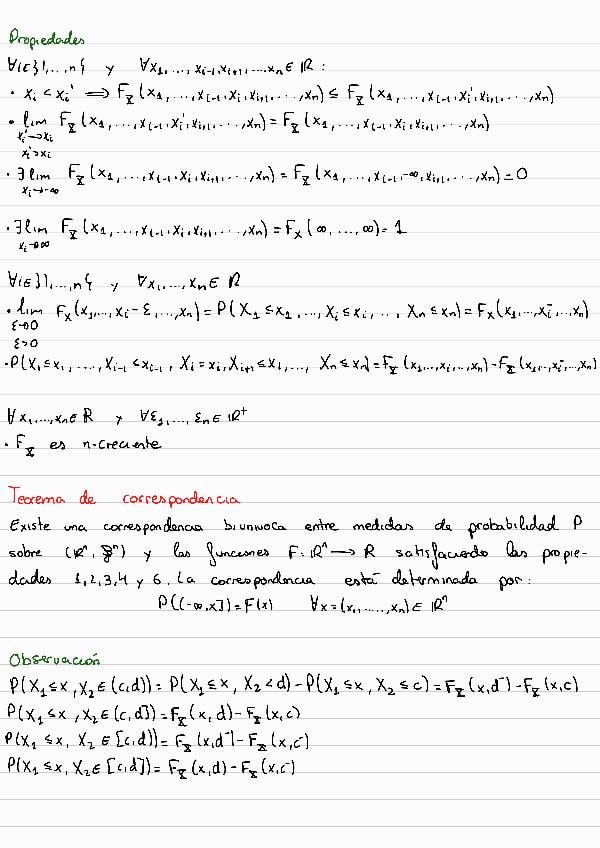 Propiedades
∀i∈{1,...,n} y ∀x₁,...,xᵢ₋₁,xᵢ₊₁,...,xₙ∈ℝ:
· xᵢ < xᵢ' ⟹ F_X(x₁,...,xᵢ₋₁,xᵢ,xᵢ₊₁,...,xₙ) ≤ F_X(x₁,...,xᵢ₋₁,xᵢ',xᵢ₊₁,...,xₙ)
· lim F_X(x₁,...,xᵢ₋₁,xᵢ',xᵢ₊₁,...,xₙ) = F_X(x₁,...,xᵢ₋₁,xᵢ,xᵢ₊₁,...,xₙ)
xᵢ'→xᵢ
xᵢ'>xᵢ
· ∃ lim F_X(x₁,...,xᵢ₋₁,xᵢ,xᵢ₊₁,...,xₙ) = F_X(x₁,...,xᵢ₋₁,-∞,xᵢ₊₁,...,xₙ) = 0
xᵢ→-∞
· ∃ lim F_X(x₁,...,xᵢ₋₁,xᵢ,xᵢ₊₁,...,xₙ) = F_X(∞,...,∞) = 1
xᵢ→∞
∀i∈{1,...,n} y ∀x₁,...,xₙ∈ℝ
· lim F_X(x₁,...,xᵢ-ε,...,xₙ) = P(X₁≤x₁,...,Xᵢ≤xᵢ,...,Xₙ≤xₙ) = F_X(x₁,...,xᵢ⁻,...,xₙ)
ε→0
ε>0
· P(X₁≤x₁,...,Xᵢ₋₁≤xᵢ₋₁, Xᵢ=xᵢ, Xᵢ₊₁≤x₁,..., Xₙ≤xₙ] = F_X(x₁,...,xᵢ,...,xₙ) - F_X(x₁,...,xᵢ⁻,...,xₙ)
∀x₁,...,xₙ∈ℝ y ∀ε₁,...,εₙ∈ℝ⁺
· F_X es n-creciente
Teorema de correspondencia
Existe una correspondencia biunívoca entre medidas de probabilidad P
sobre (ℝⁿ, βⁿ) y las funciones F: ℝⁿ → ℝ satisfaciendo las propie-
dades 1,2,3,4 y 6. La correspondencia está determinada por:
P((-∞,x]) = F(x) ∀x=(x₁,...,xₙ)∈ℝⁿ
Observación
P(X₁≤x, X₂∈(c,d)) = P(X₁≤x, X₂<d) - P(X₁≤x, X₂≤c) = F_X(x,d⁻) - F_X(x,c)
P(X₁≤x, X₂∈(c,d]) = F_X(x,d) - F_X(x,c)
P(X₁≤x, X₂∈[c,d)) = F_X(x,d⁻) - F_X(x,c⁻)
P(X₁≤x, X₂∈[c,d]) = F_X(x,d) - F_X(x,c⁻)